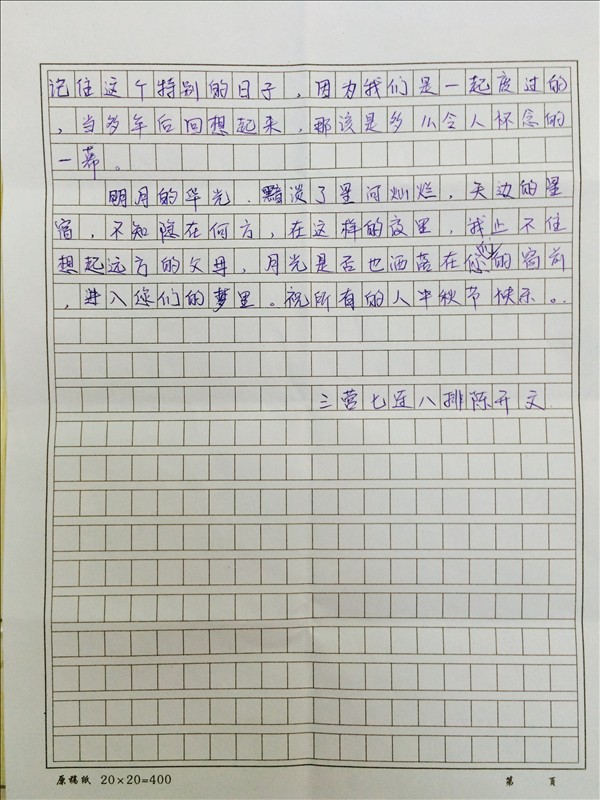 记住这个特别的日子，因为我们是一起度过的
，当多年后回想起来，那该是多么令人怀念的
一幕。
明月的华光，黯淡了星河灿烂，天边的星
宿，不知隐在何方，在这样的夜里，我止不住
想起远方的父母，月光是否也洒落在您们的窗前
，进入您们的梦里。祝所有的人中秋节快乐。
三营七连八排陈开文
原稿纸 20×20=400
第 页